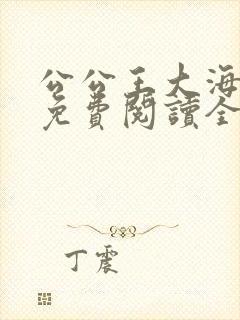 公公王大海
免費閱讀全
丁震